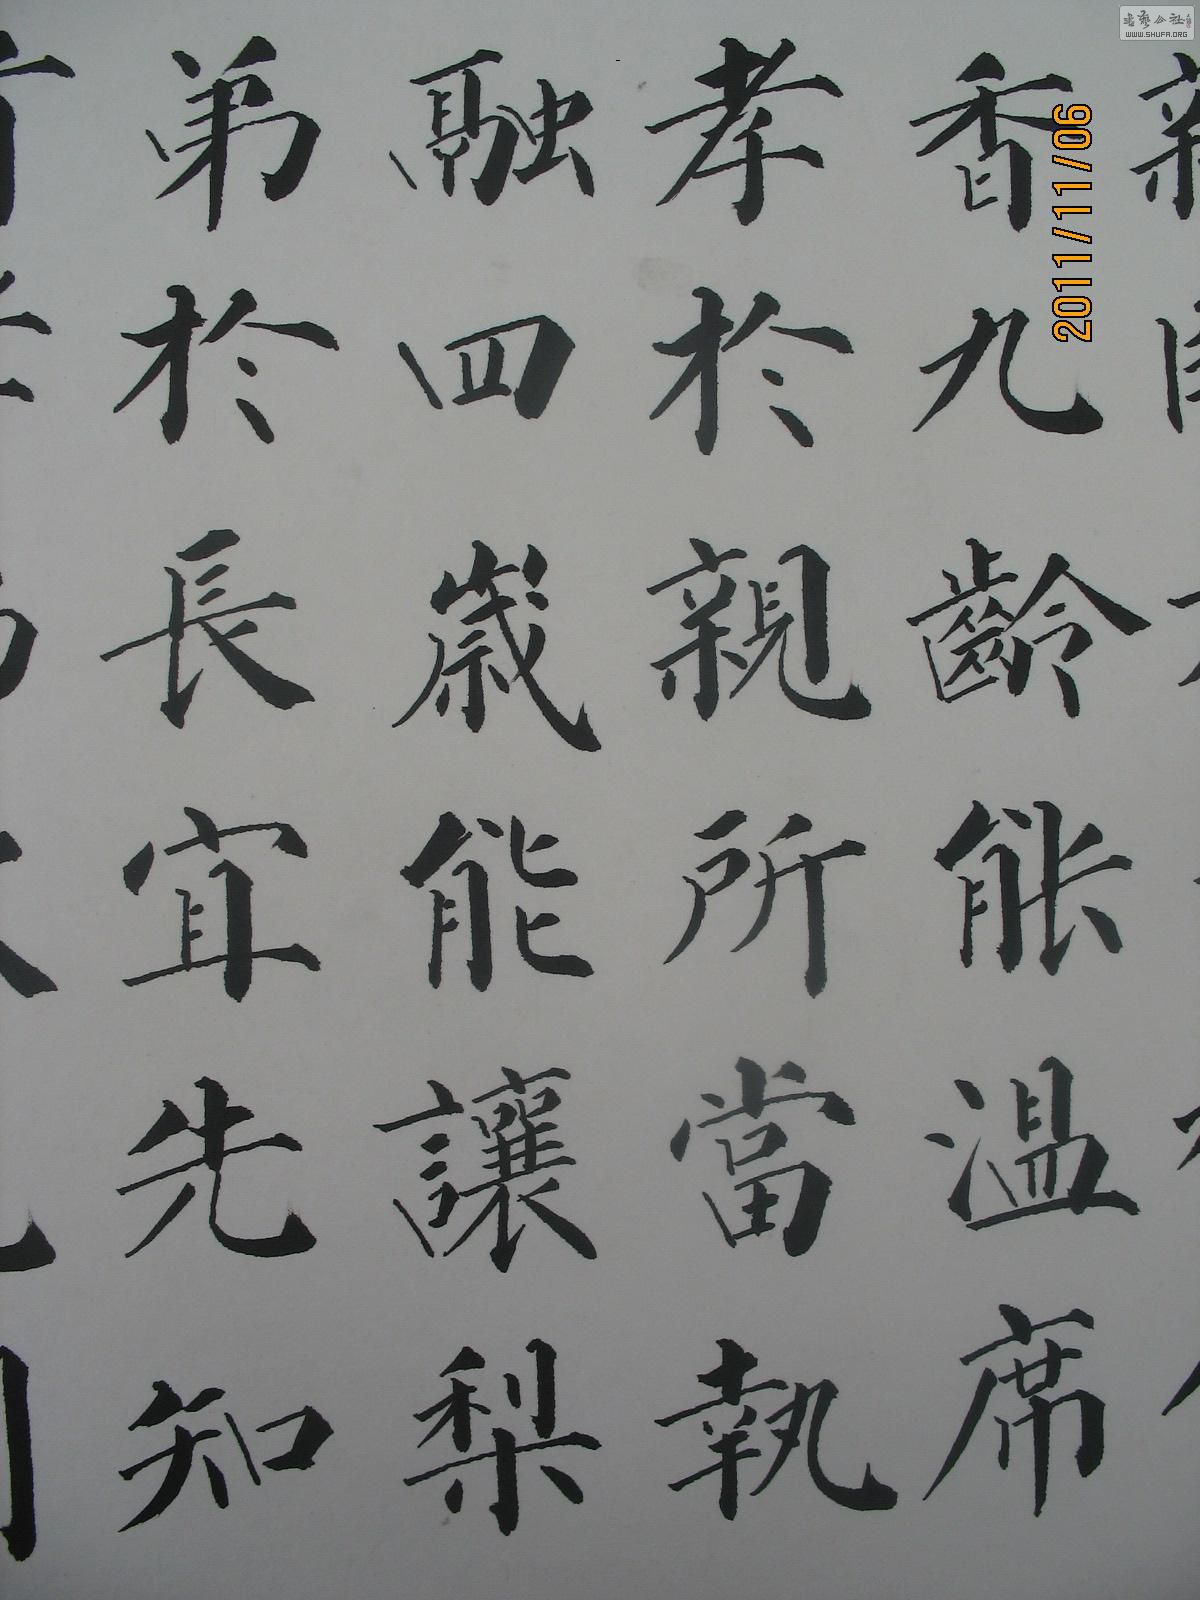 香九齡能溫席
孝於親所當執
融四歲能讓梨
弟於長宜先知
2011/11/06
書藝公社
WWW.SHUFA.ORG